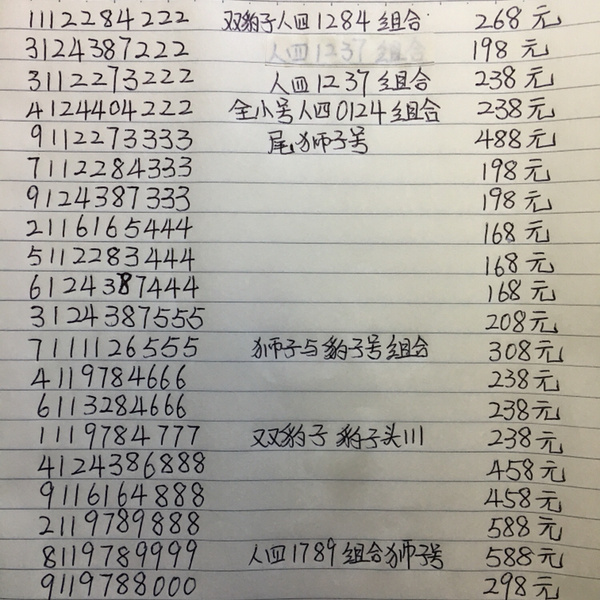 1112284222 双豹子人四1284组合 268元
3124387222 人四1237组合 198元
3112273222 人四1237组合 238元
4124404222 全小号人四0124组合 238元
9112273333 尾狮子号 488元
7112284333 198元
9124387333 198元
2116165444 168元
5112283444 168元
6124387444 168元
3124387555 208元
7111126555 狮子与豹子号组合 308元
4119784666 238元
6113284666 238元
1119784777 双豹子 豹子头111 238元
4124386888 458元
9116164888 458元
2119789888 588元
8119789999 人四1789组合狮子号 588元
9119788000 298元